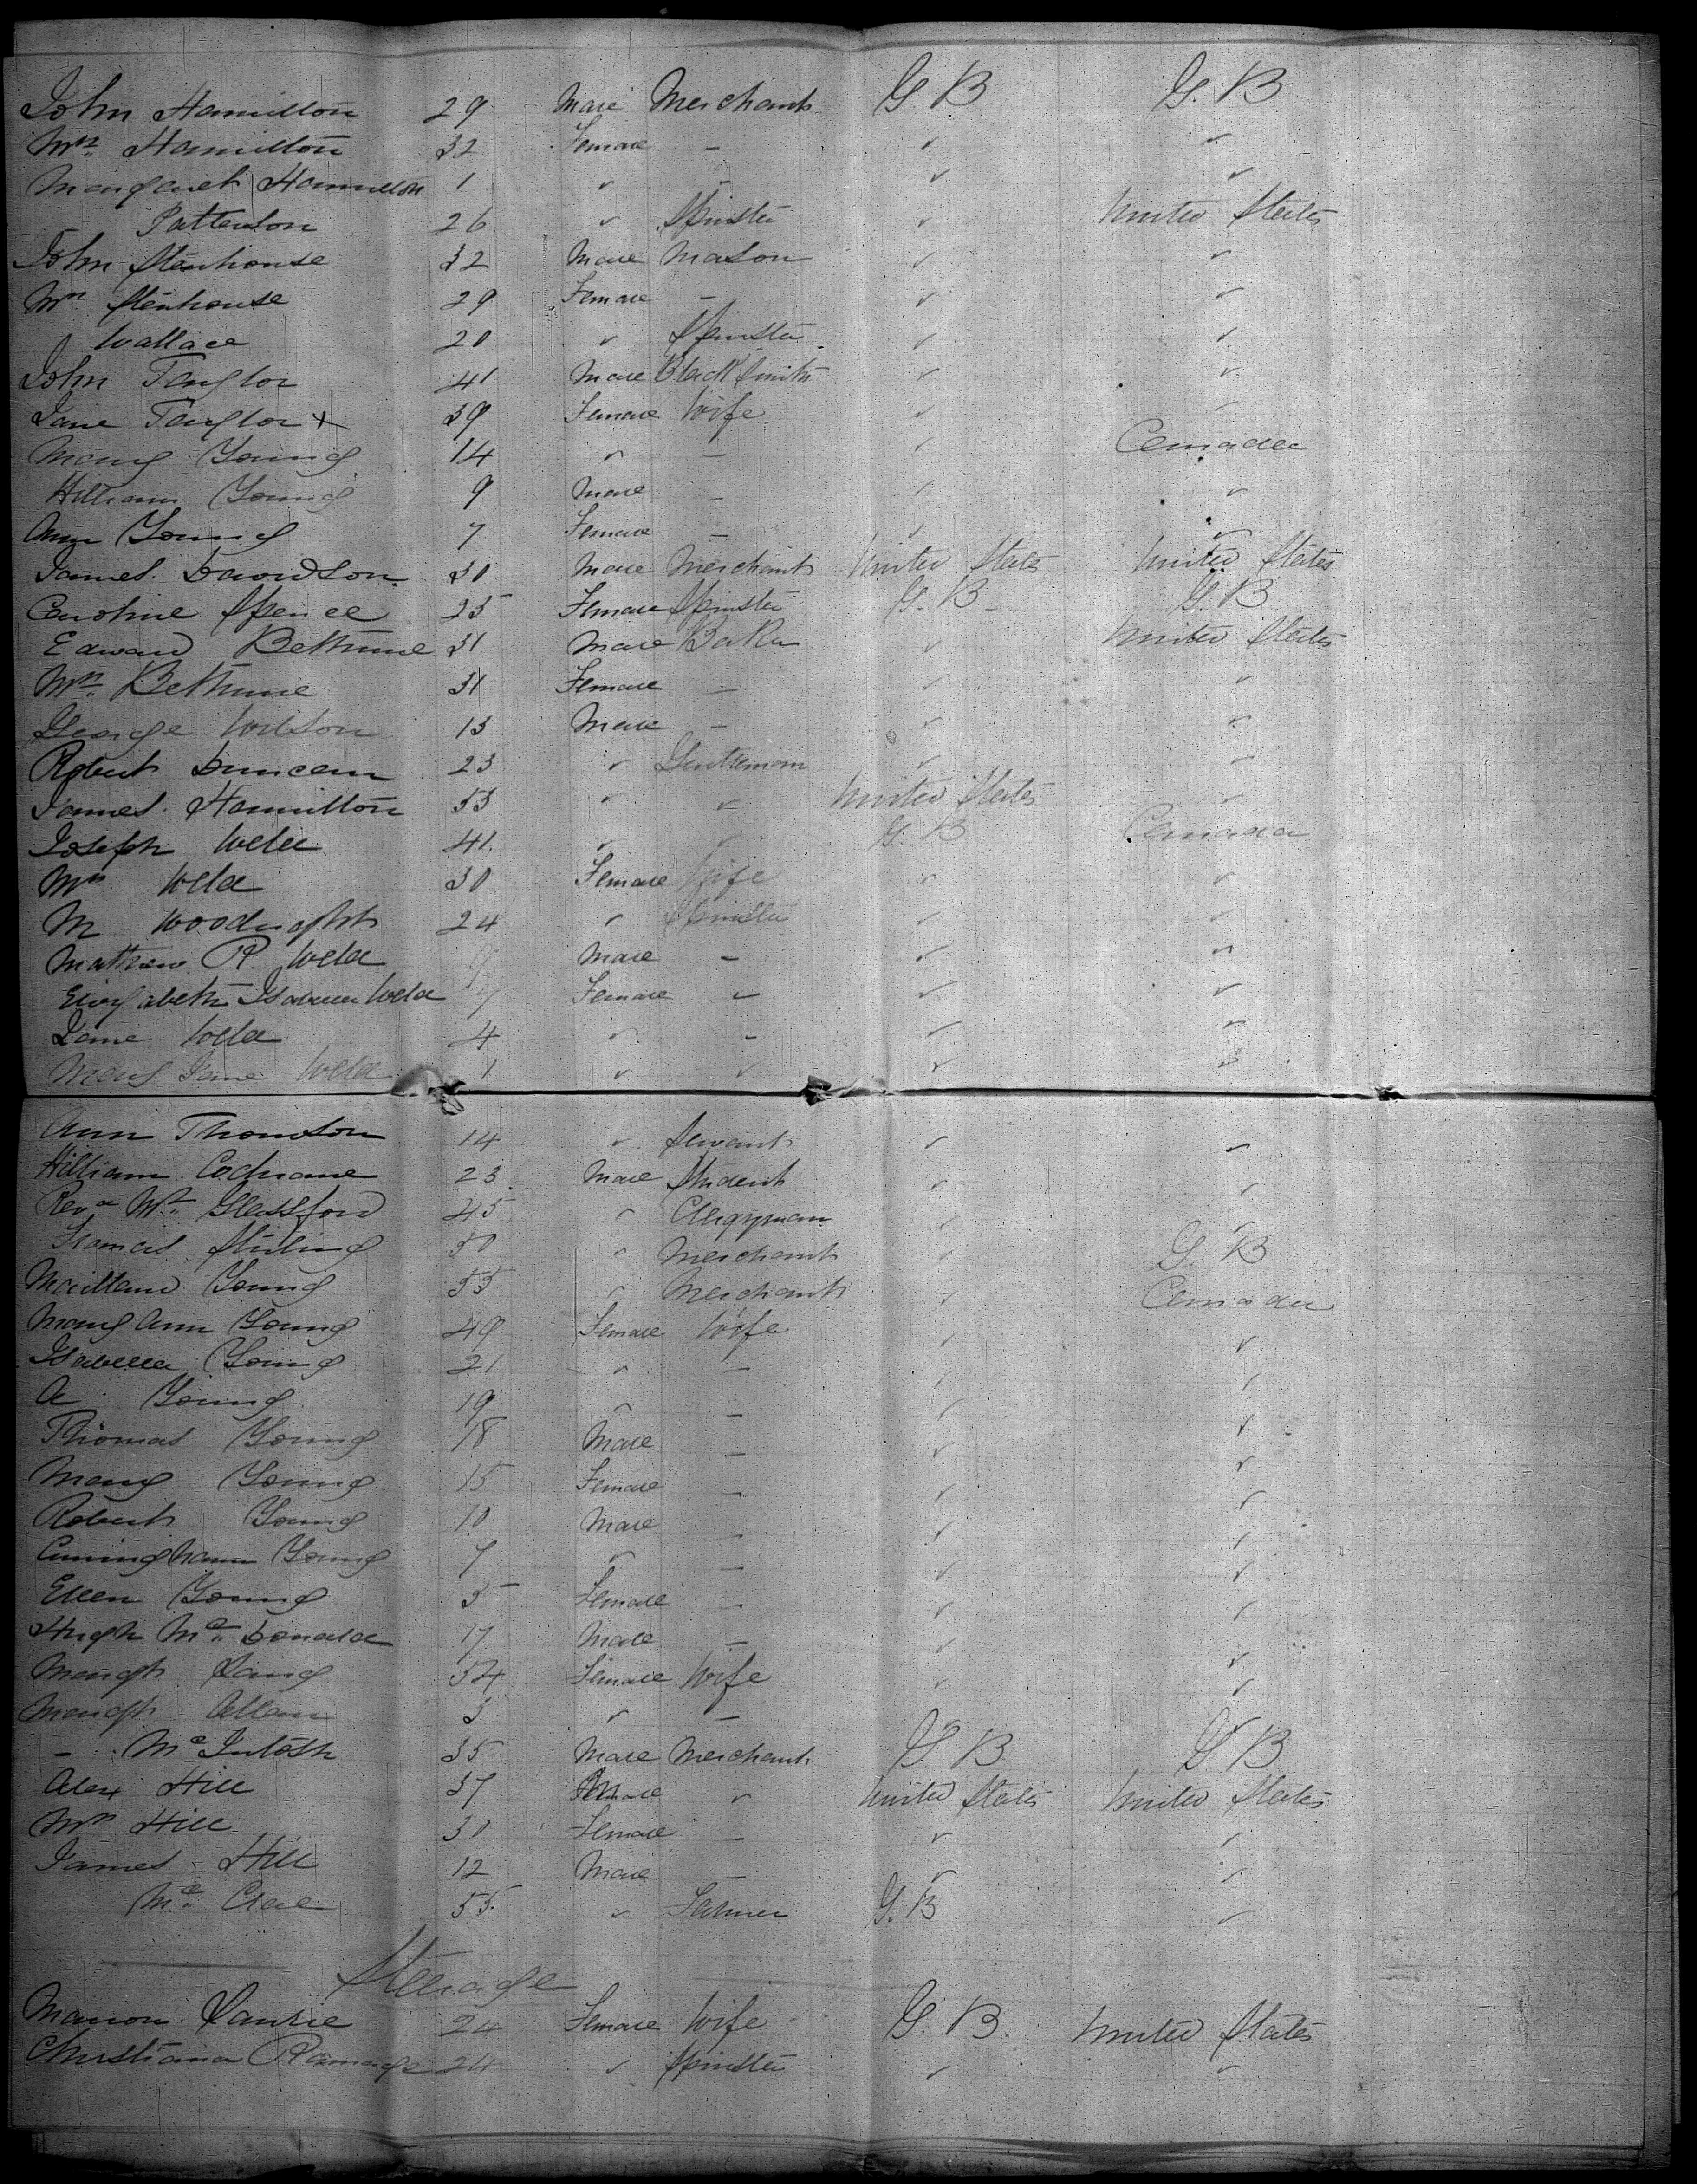 John Hamilton 29 Male Merchant G.B G.B
Mrs Hamilton 32 Female - ✓ ✓
Margaret Hamilton 1 ✓ - ✓ ✓
Patterson 26 ✓ Spinster ✓ United States
John Stenhouse 32 Male Mason ✓ ✓
Mrs Stenhouse 29 Female - ✓ ✓
Wallace 20 ✓ Spinster ✓ ✓
John Taylor 41 Male Black Smith ✓ ✓
Jane Taylor x 39 Female Wife ✓ ✓
Mary Young 14 ✓ - ✓ Canada
William Young 9 Male - ✓ ✓
Ann Young 7 Female - ✓ ✓
James Davidson 30 Male Merchant United States United States
Caroline Spence 25 Female Spinster G.B G.B
Edward Bethune 31 Male Baker ✓ United States
Mrs Bethune 31 Female - ✓ ✓
George Wilson 13 Male - ✓ ✓
Robert Duncan 23 ✓ Gentleman ✓ ✓
James Hamilton 53 ✓ ✓ United States ✓
Joseph Weld 41 ✓ ✓ G.B Canada
Mrs Weld 30 Female Wife ✓ ✓
M Woodright 24 ✓ Spinster ✓ ✓
Mathew R Weld 9 Male - ✓ ✓
Elizabeth Isabella Weld 7 Female - ✓ ✓
Jane Weld 4 ✓ - ✓ ✓
Mary Jane Weld 1 ✓ ✓ ✓ ✓
Ann Thomson 14 ✓ Servant ✓ ✓
William Cochrane 23 Male Student ✓ ✓
Revd Mr Glassford 45 ✓ Clergyman ✓ ✓
Thomas Stirling 50 ✓ Merchant ✓ G.B
Maitland Young 55 ✓ Merchant ✓ Canada
Mary Ann Young 49 Female Wife ✓ ✓
Isabella Young 21 ✓ - ✓ ✓
A Young 19 ✓ - ✓ ✓
Thomas Young 18 Male - ✓ ✓
Mary Young 15 Female - ✓ ✓
Robert Young 10 Male - ✓ ✓
Cuninghame Young 7 ✓ - ✓ ✓
Ellen Young 5 Female - ✓ ✓
Hugh Mc Donald 17 Male - ✓ ✓
Margt Lang 34 Female Wife ✓ ✓
Margt Allan 3 ✓ - ✓ ✓
- Mc Intosh 35 Male Merchant G.B G.B
Alex Hill 37 Male ✓ United States United States
Mrs Hill 30 Female - ✓ ✓
James Hill 12 Male - ✓ ✓
Mc Crae 55 ✓ Farmer G.B ✓
Steerage
Marion Laurie 24 Female Wife G.B. United States
Christiana Ramage 24 ✓ Spinster ✓ ✓